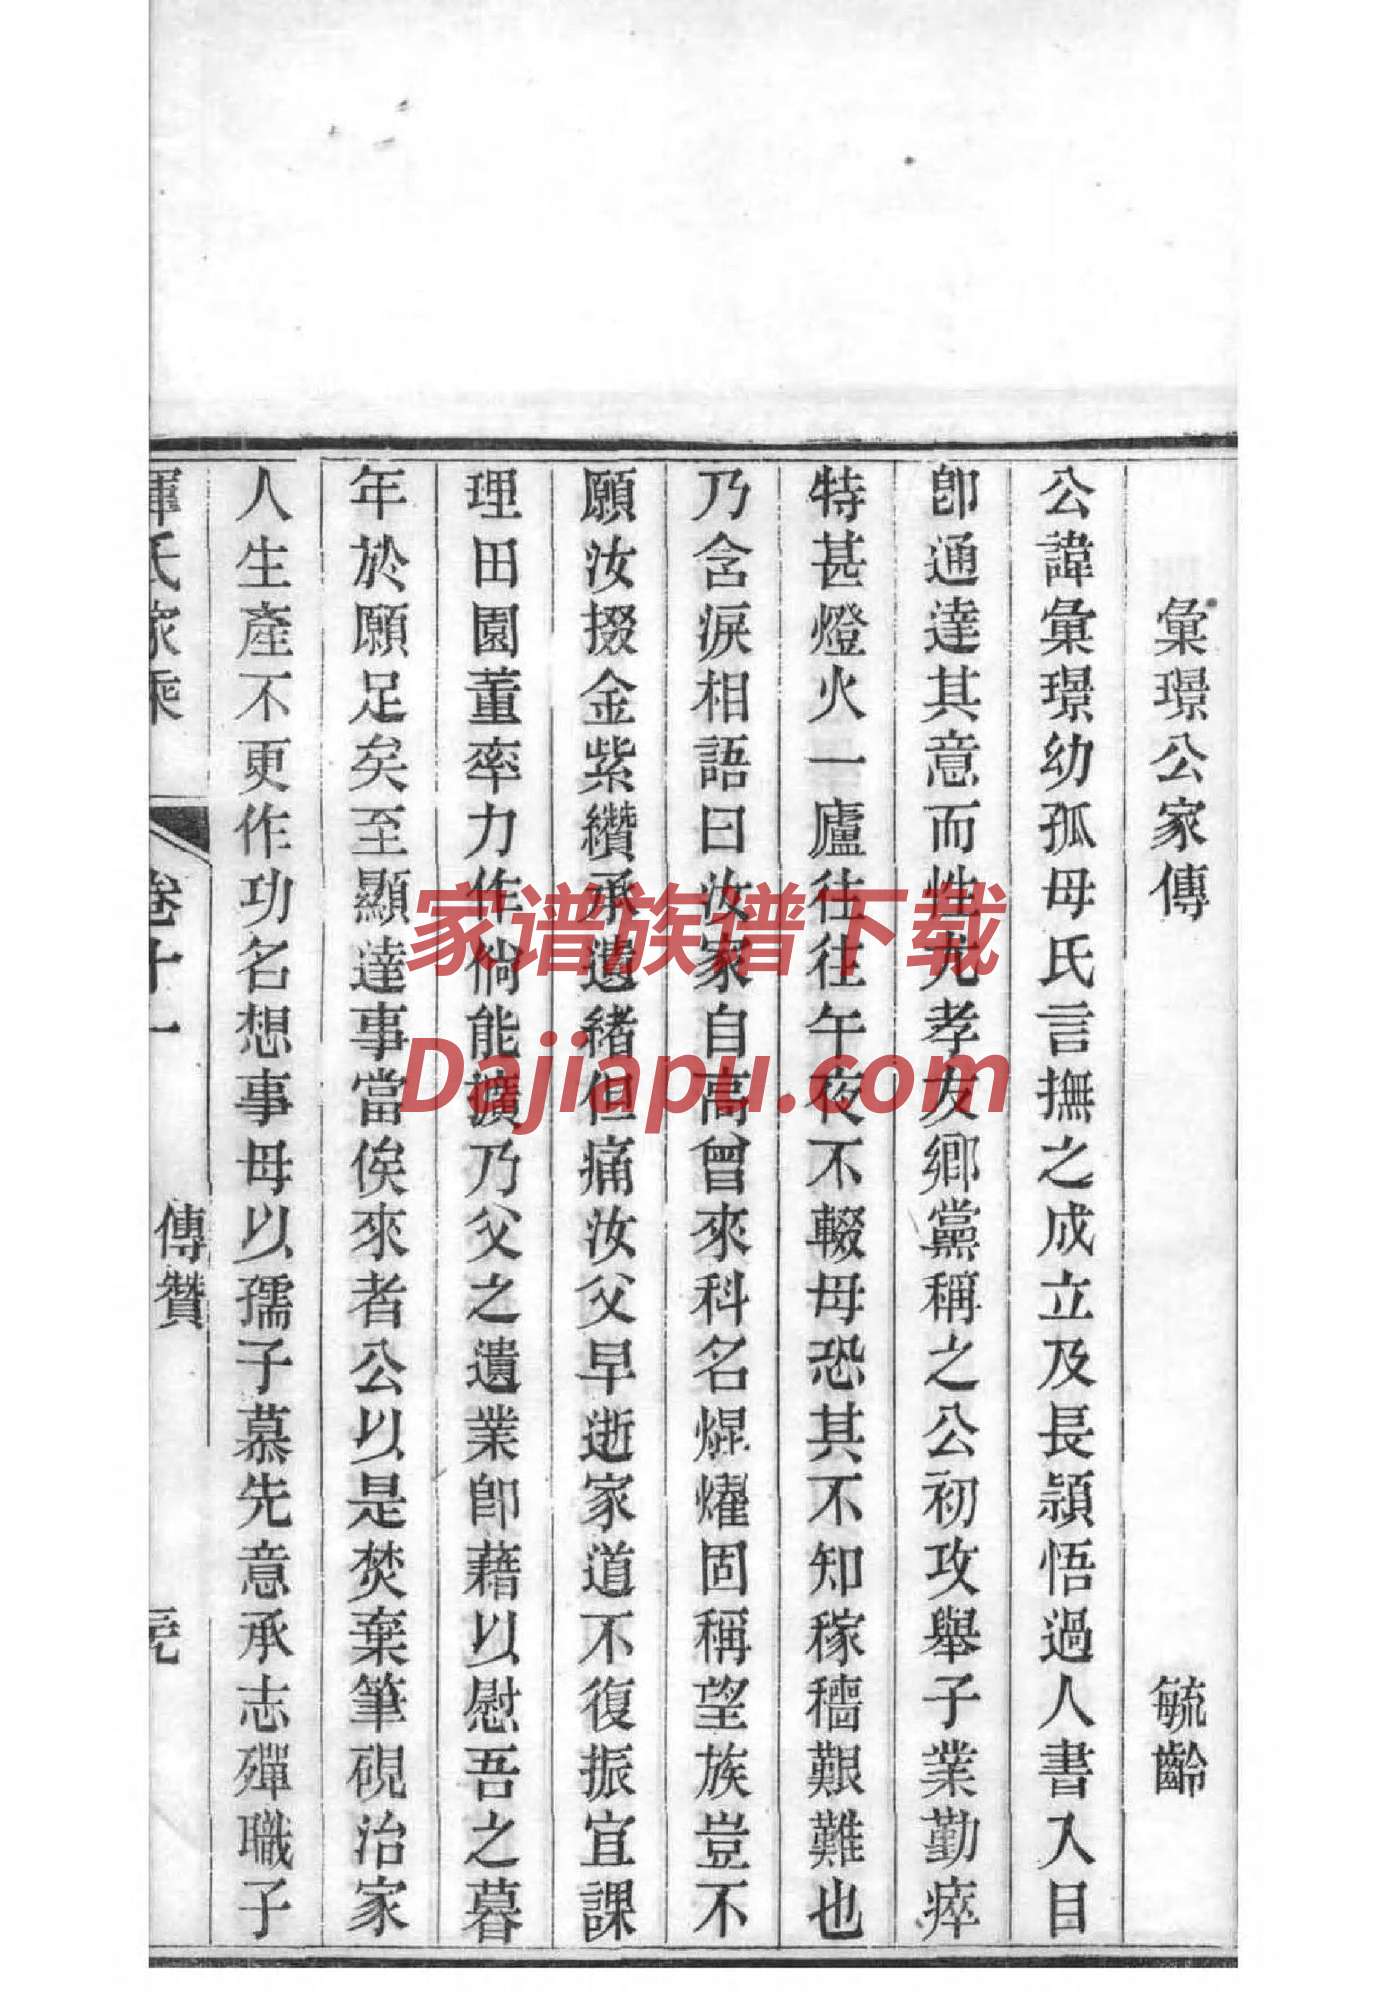 彙璟公家傳
毓齡
公諱彙璟幼孤母氏言撫之成立及長頴悟過人書入目
卽通達其意而性尤孝友鄉黨稱之公初攻舉子業勤瘁
特甚燈火一廬往往午夜不輟母恐其不知稼穡艱難也
乃含淚相語曰汝家自高曾來科名焜燿固稱望族豈不
願汝掇金紫纘承遺緒但痛汝父早逝家道不復振宜課
理田園董率力作倘能擴乃父之遺業卽藉以慰吾之暮
年於願足矣至顯達事當俟來者公以是焚棄筆硯治家
人生產不更作功名想事母以孺子慕先意承志殫職子
惲氏家乘
卷十一
傳贊
家谱族谱下载
Dajiapu.com